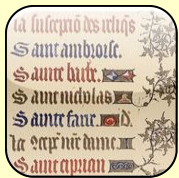 la suscepcõ des reliq̃s
Saint ambroise.
Sainte barbe.
Saint nicholas
Sainte fare. d.
le cõcep̃ nr̃e dame.
Saint ciprian